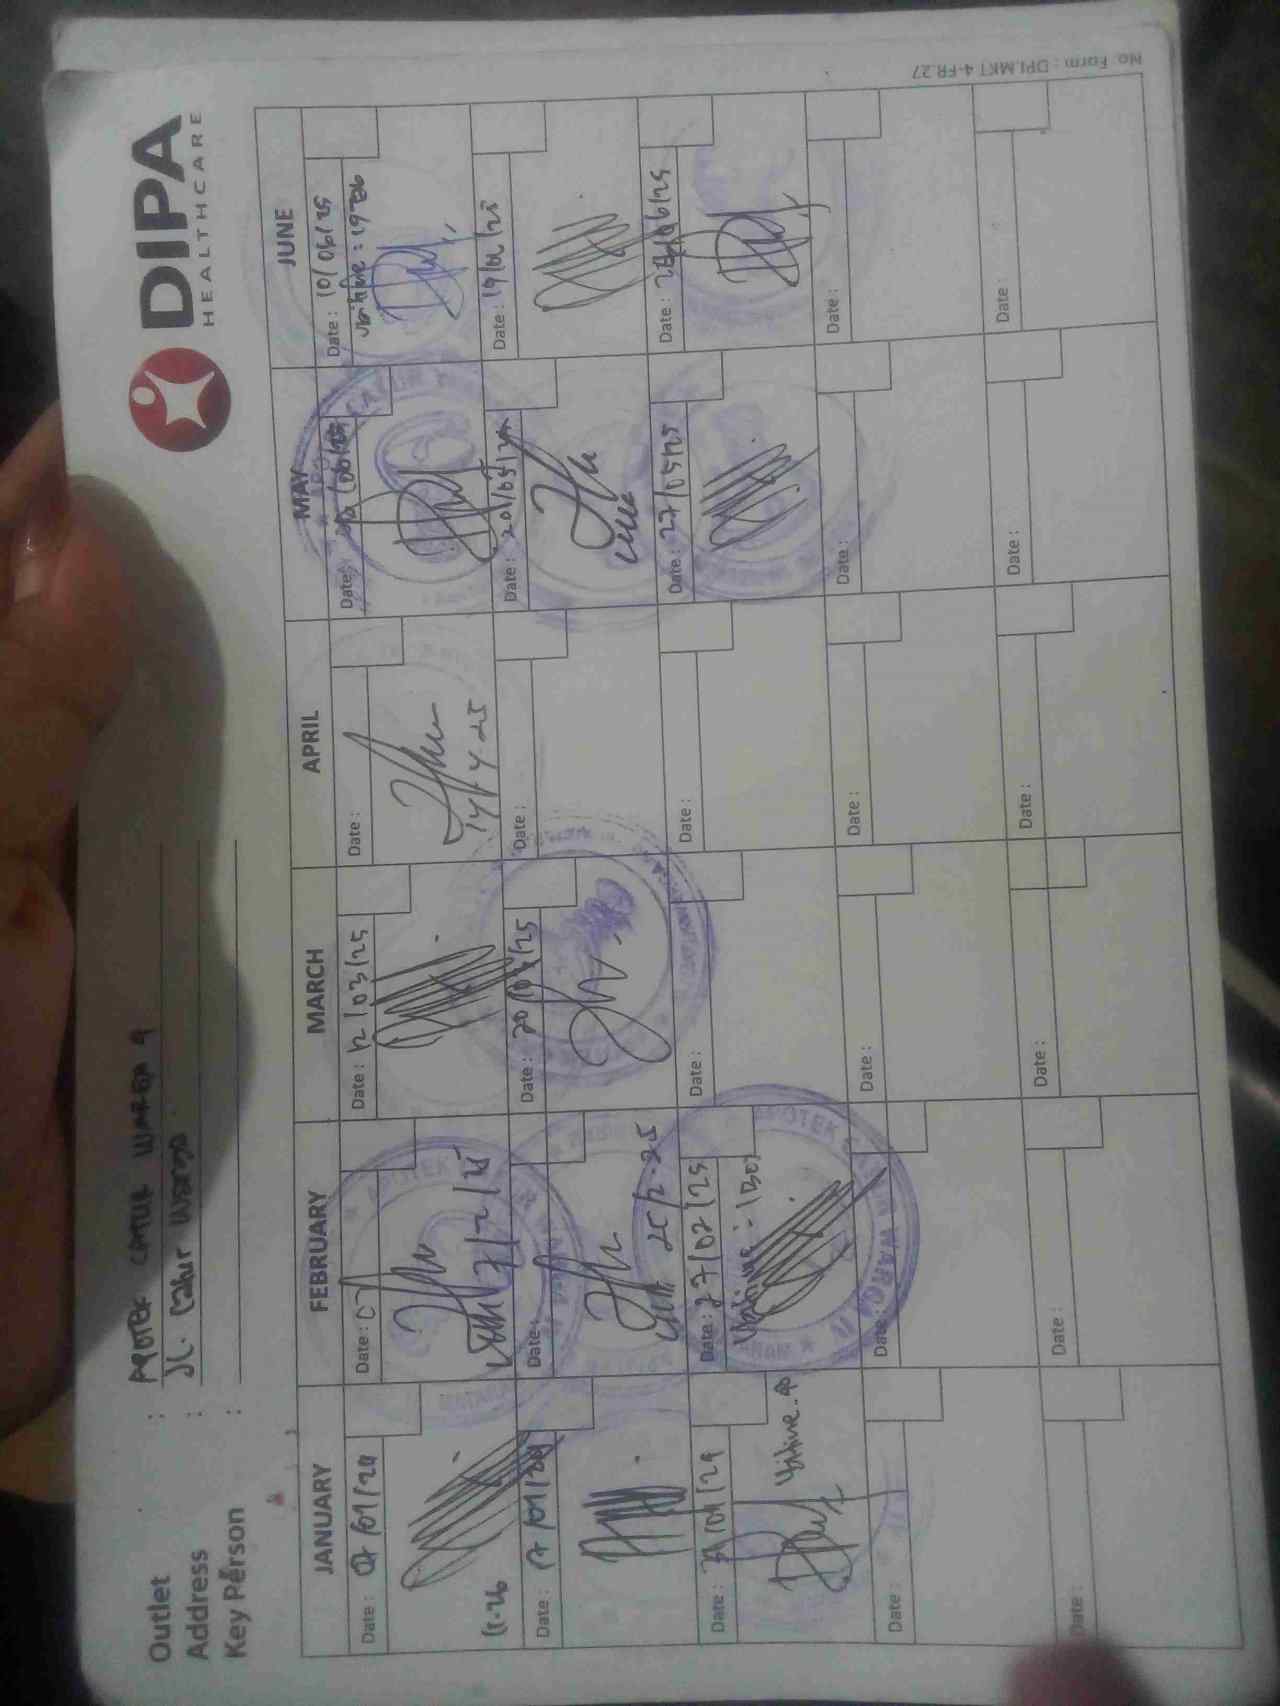 DIPA
HEALTHCARE
Outlet : APOTEK CATUR WARGA 9
Address : JL. Catur Warga
Key Person :
JANUARY FEBRUARY MARCH APRIL MAY JUNE
Date : 07/01/24
Date : 07
7/2/25
Date : 12/03/25
Date :
14/4-25
Date :
Date : 10/06/25
Date : 17/01/24
Date :
25/2-25
Date : 20/03/25
Date :
Date : 20/05/25
Date : 19/06/25
Date : 31/01/24
Date : 27/02/25
Date :
Date :
Date : 27/05/25
Date : 26/06/25
Date :
Date :
Date :
Date :
Date :
Date :
Date :
Date :
Date :
Date :
Date :
Date :
APOTEK CATUR WARGA
No. Form : DPI.MKT-4-FR.27